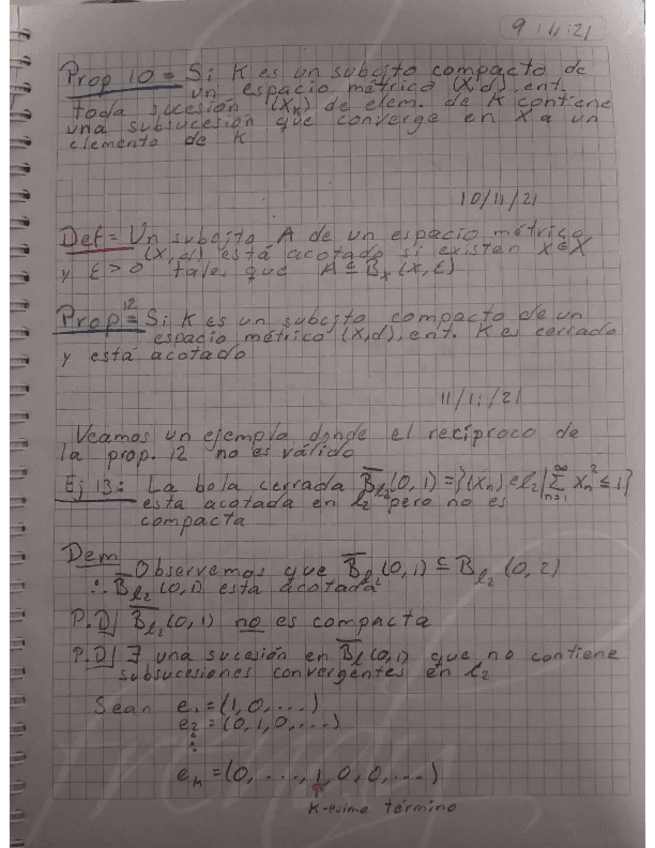 9:11:21
Prop 10 = Si K es un subcjto compacto de
un espacio métrico (X,d), ent.
toda sucesión (Xn) de elem. de K contiene
una subsucesión que converge en X a un
elemento de K
10/11/21
Def = Un subcjto A de un espacio métrico
(X,d) está acotado si existen x∈X
y ε>0 tales que A⊆Bx(x,ε)
12
Prop = Si K es un subcjto compacto de un
espacio métrico (X,d), ent. K es cerrado
y está acotado
11/11/21
Veamos un ejemplo donde el recíproco de
la prop. 12 no es válido
Ej 13: La bola cerrada B̅ℓ₂(0,1)={(Xn)∈ℓ₂|∑_{n=1}^∞ Xn²≤1}
esta acotada en ℓ₂ pero no es
compacta
Dem
Observemos que B̅ℓ₂(0,1) ⊆ Bℓ₂(0,2)
∴ B̅ℓ₂(0,1) esta acotada
P.D/ B̅ℓ₂(0,1) no es compacta
P.D/ ∃ una sucesión en B̅ℓ(0,1) que no contiene
subsucesiones convergentes en ℓ₂
Sean e₁=(1,0,...)
e₂=(0,1,0,...)
⋮
eₖ=(0,...,1,0,0,...)
K-esimo término